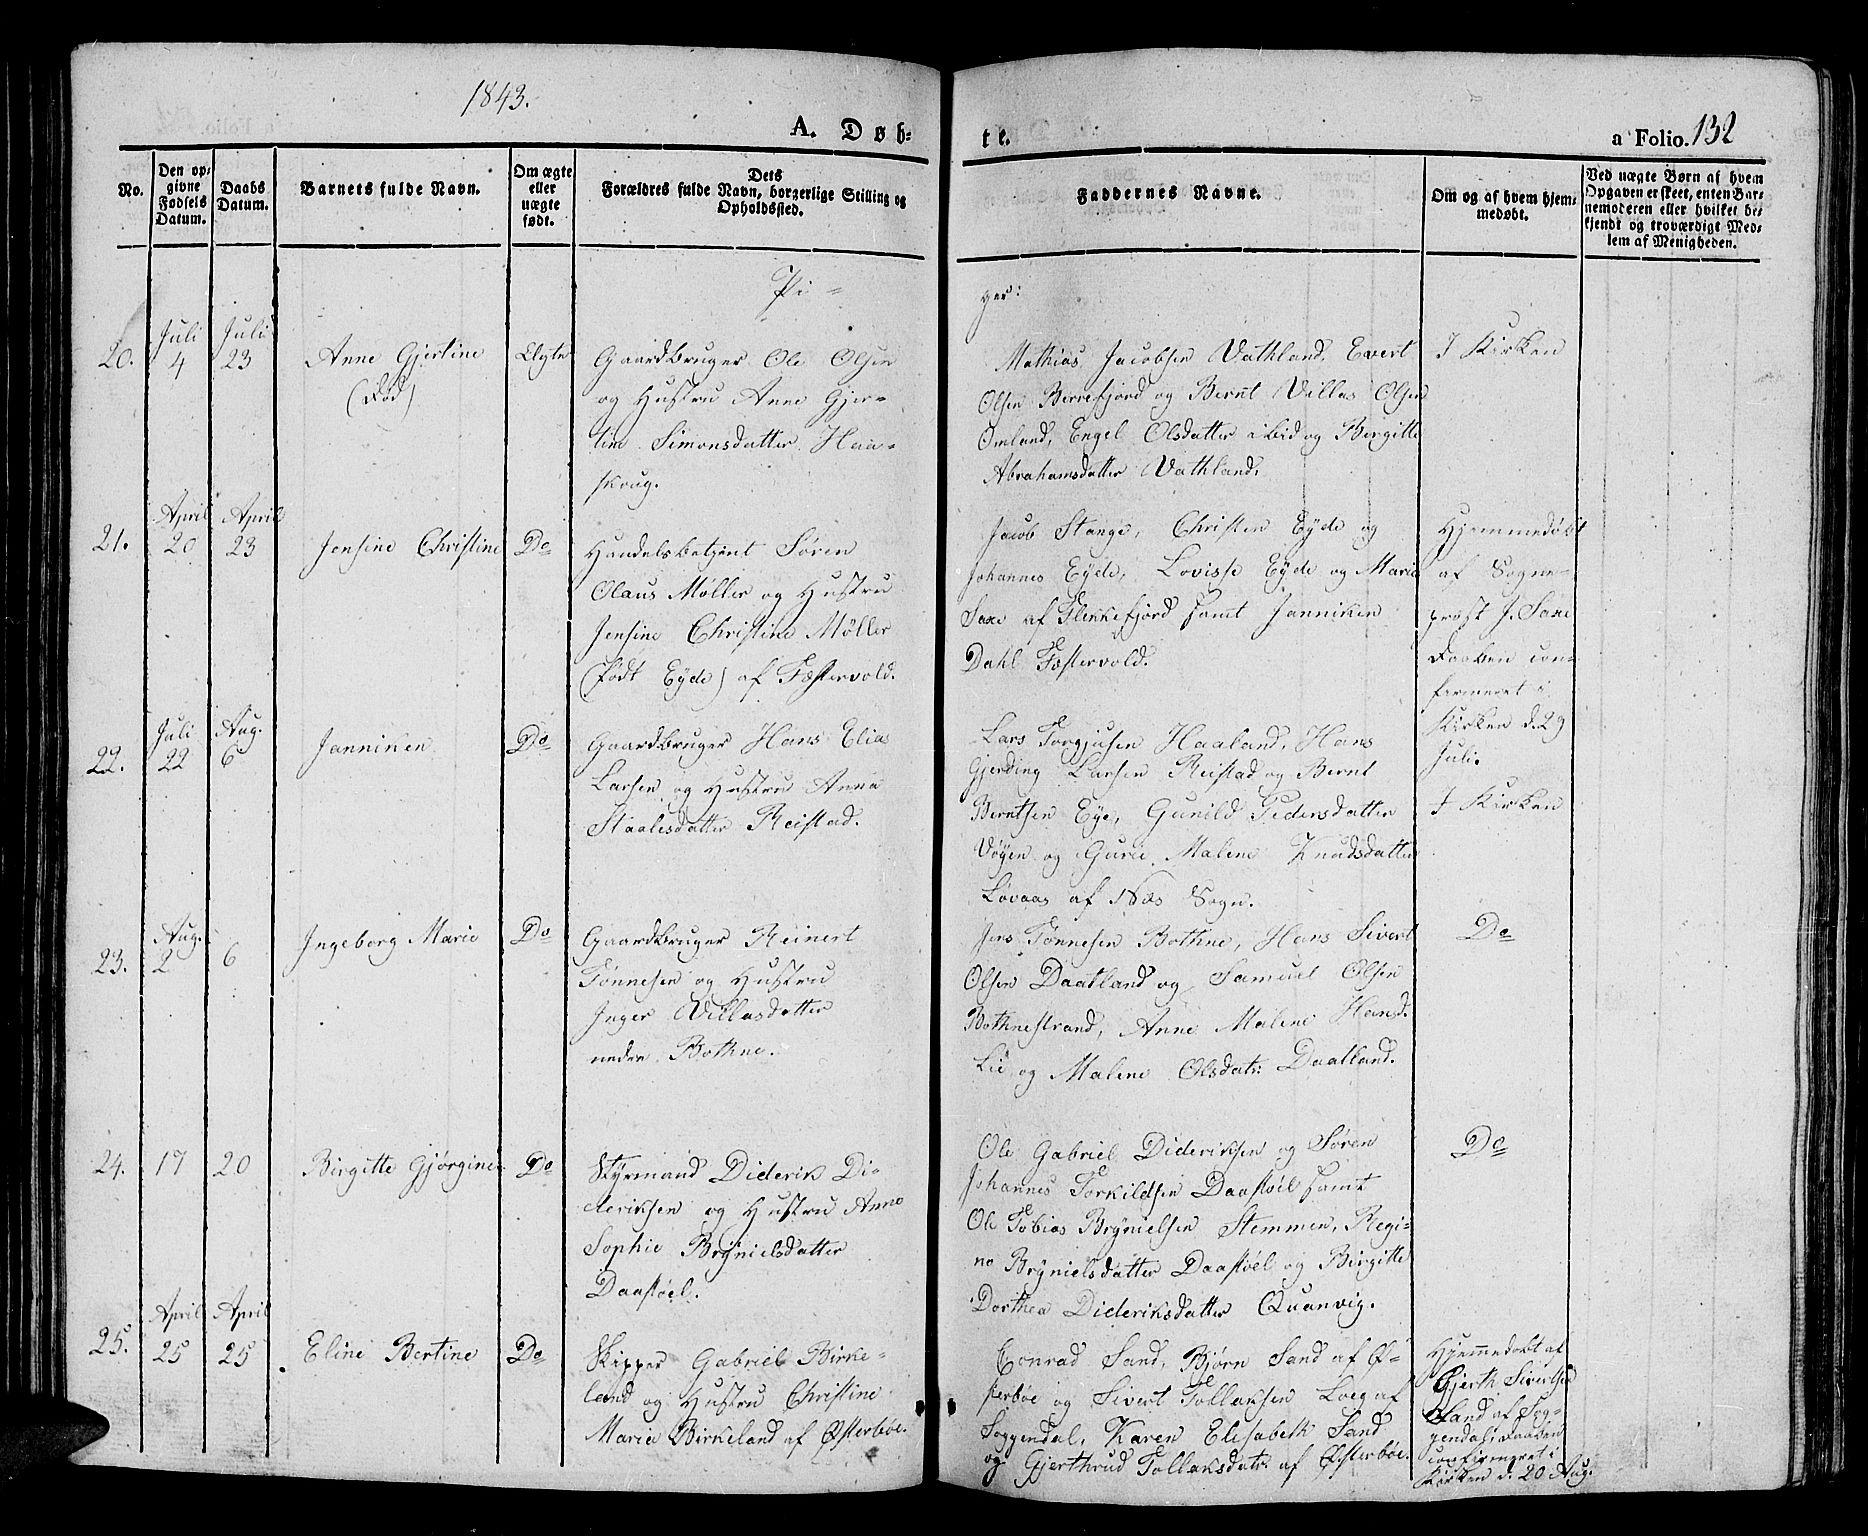 1843.
A. Døb-
te.
a Folio. 132
No.
Den op-
givne
Fødsels
Datum.
Daabs
Datum.
Barnets fulde Navn.
Om ægte
eller
uægte
født.
Dets
Forældres fulde Navn, borgerlige Stilling og
Opholdssted.
Faddernes Navne.
Om og af hvem hjem-
medøbt.
Ved uægte Børn af hvem
Opgaven er skeet, enten Bar-
nemoderen eller hvilket be-
kjendt og troværdigt Med-
lem af Menigheden.
Pi-
ger:
20.
Juli
4
Juli
23
Anne Gjertine
(død)
Ægte
Gaardbruger Ole Olsen
og Hustru Anne Gjer-
tine Simonsdatter Haa-
skoug.
Mathias Jacobsen Vathland, Evert
Olsen Berrefjord og Bernt Villas Olsen
Omland, Engel Olsdatter ibid og Birgitte
Abrahamsdatter Vathland.
I Kirken
21.
April
20
April
23
Jensine Christine
Do
Handelsbetjent Søren
Olaus Møller og Hustru
Jensine Christine Møller
(født Eyde) af Fæstervold.
Jacob Stange, Christen Eyde og
Johannes Eyde, Lovisse Eyde og Marie
Saxe af Flekkefjord samt Janniken
Dahl Fæstervold.
Hjemmedøbt
af Sogne-
præst J. Saxe
Daaben con-
firmeret i
Kirken d. 29
Juli.
22.
Juli
22
Aug.
6
Janniken
Do
Gaardbruger Hans Elias
Larsen og Hustru Anna
Staalesdatter Reistad.
Lars Torgjusen Haaland, Hans
Gjerding Larsen Reistad og Bernt
Berntsen Eye, Gunild Pedersdatter
Vøyen og Gurie Malene Knudsdatter
Løvaas af Næs Sogn.
I Kirken
23.
Aug.
2
6
Ingeborg Marie
Do
Gaardbruger Reinert
Tønnesen og Hustru
Inger Villasdatter
nedre Bothne.
Jens Tønnesen Bothne, Hans Sivert
Olsen Daatland og Samuel Olsen
Bothnestrand, Anne Malene Hansd.
Lie og Malene Olsdatr: Daatland.
Do
24.
17
20
Birgitte Gjørgine
Do
Styrmand Diderik Di-
deriksen og Hustru Anne
Sophie Brynielsdatter
Daastøel.
Ole Gabriel Dideriksen og Søren
Johannes Torkildsen Daastøel samt
Ole Tobias Brynielsen Stemmen, Regi-
ne Brynielsdatter Daastøel og Birgitte
Dorthea Dideriksdatter Quanvig.
Do
25.
April
25
April
25
Eline Bertine
Do
Skipper Gabriel Birke-
land og Hustru Christine
Marie Birkeland af Østerbøe.
Conrad Sand, Bjørn Sand af Ø-
sterbøe og Sivert Tollaksen Loeg af
Soggendal, Karen Elisabeth Sand
og Gjerthrud Tollaksdatr: af Østerbøe.
Hjemmedøbt af
Gjerth Sivertsen
land af Sog-
gendal, Daaben
confirmeret i
Kirken d. 20 Aug.